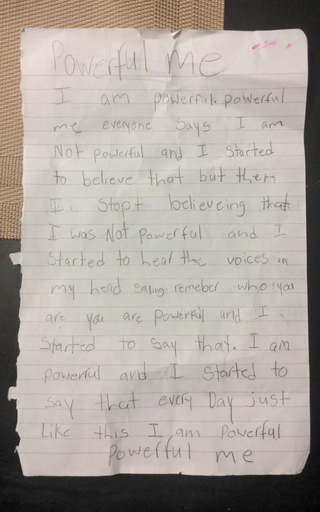 Powerful me
I am powerful. powerful
me everyone says I am
Not powerful and I started
to believe that but then
I. Stopt believeing that
I was Not powerful and I
Started to hear the voices in
my head saling remeber who you
are you are powerful and I.
Started to say that. I am
powerful and I started to
say that every Day just
Like this I am powerful
Powerful me